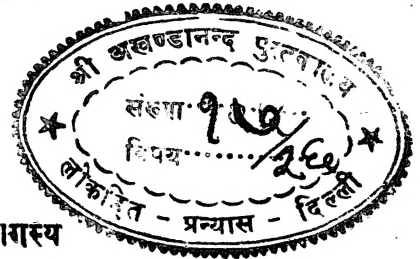 श्री अखण्डानन्द पुस्तकालय
संख्या १७/२६
विषय
लोकहित - प्रन्यास - दिल्ली